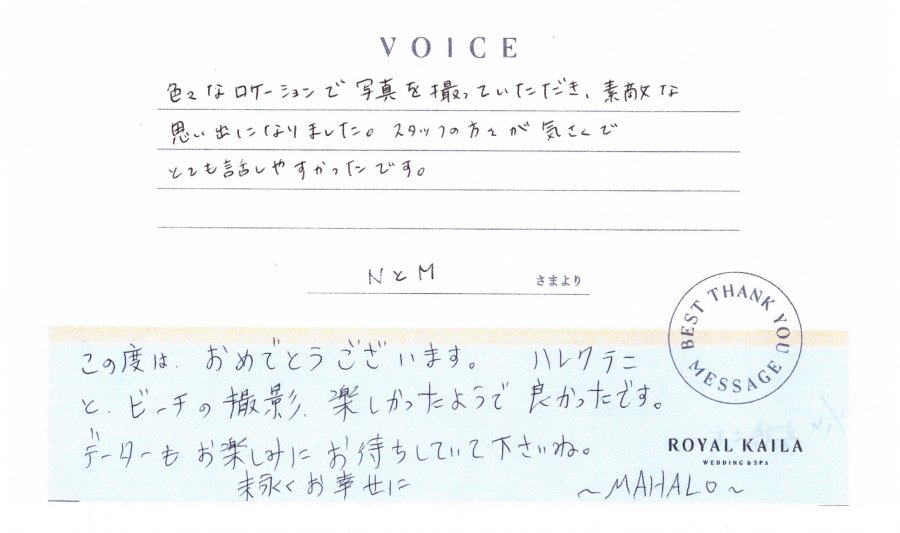 VOICE
色々なロケーションで写真を撮っていただき、素敵な
思い出になりました。スタッフの方々が気さくで
とても話しやすかったです。
NとM さまより
BEST THANK YOU MESSAGE
この度は、おめでとうございます。 ハレクラニ
と、ビーチの撮影、楽しかったようで良かったです。
データーもお楽しみにお待ちしていて下さいね。
末永くお幸せに ～MAHALO～
ROYAL KAILA
WEDDING & SPA